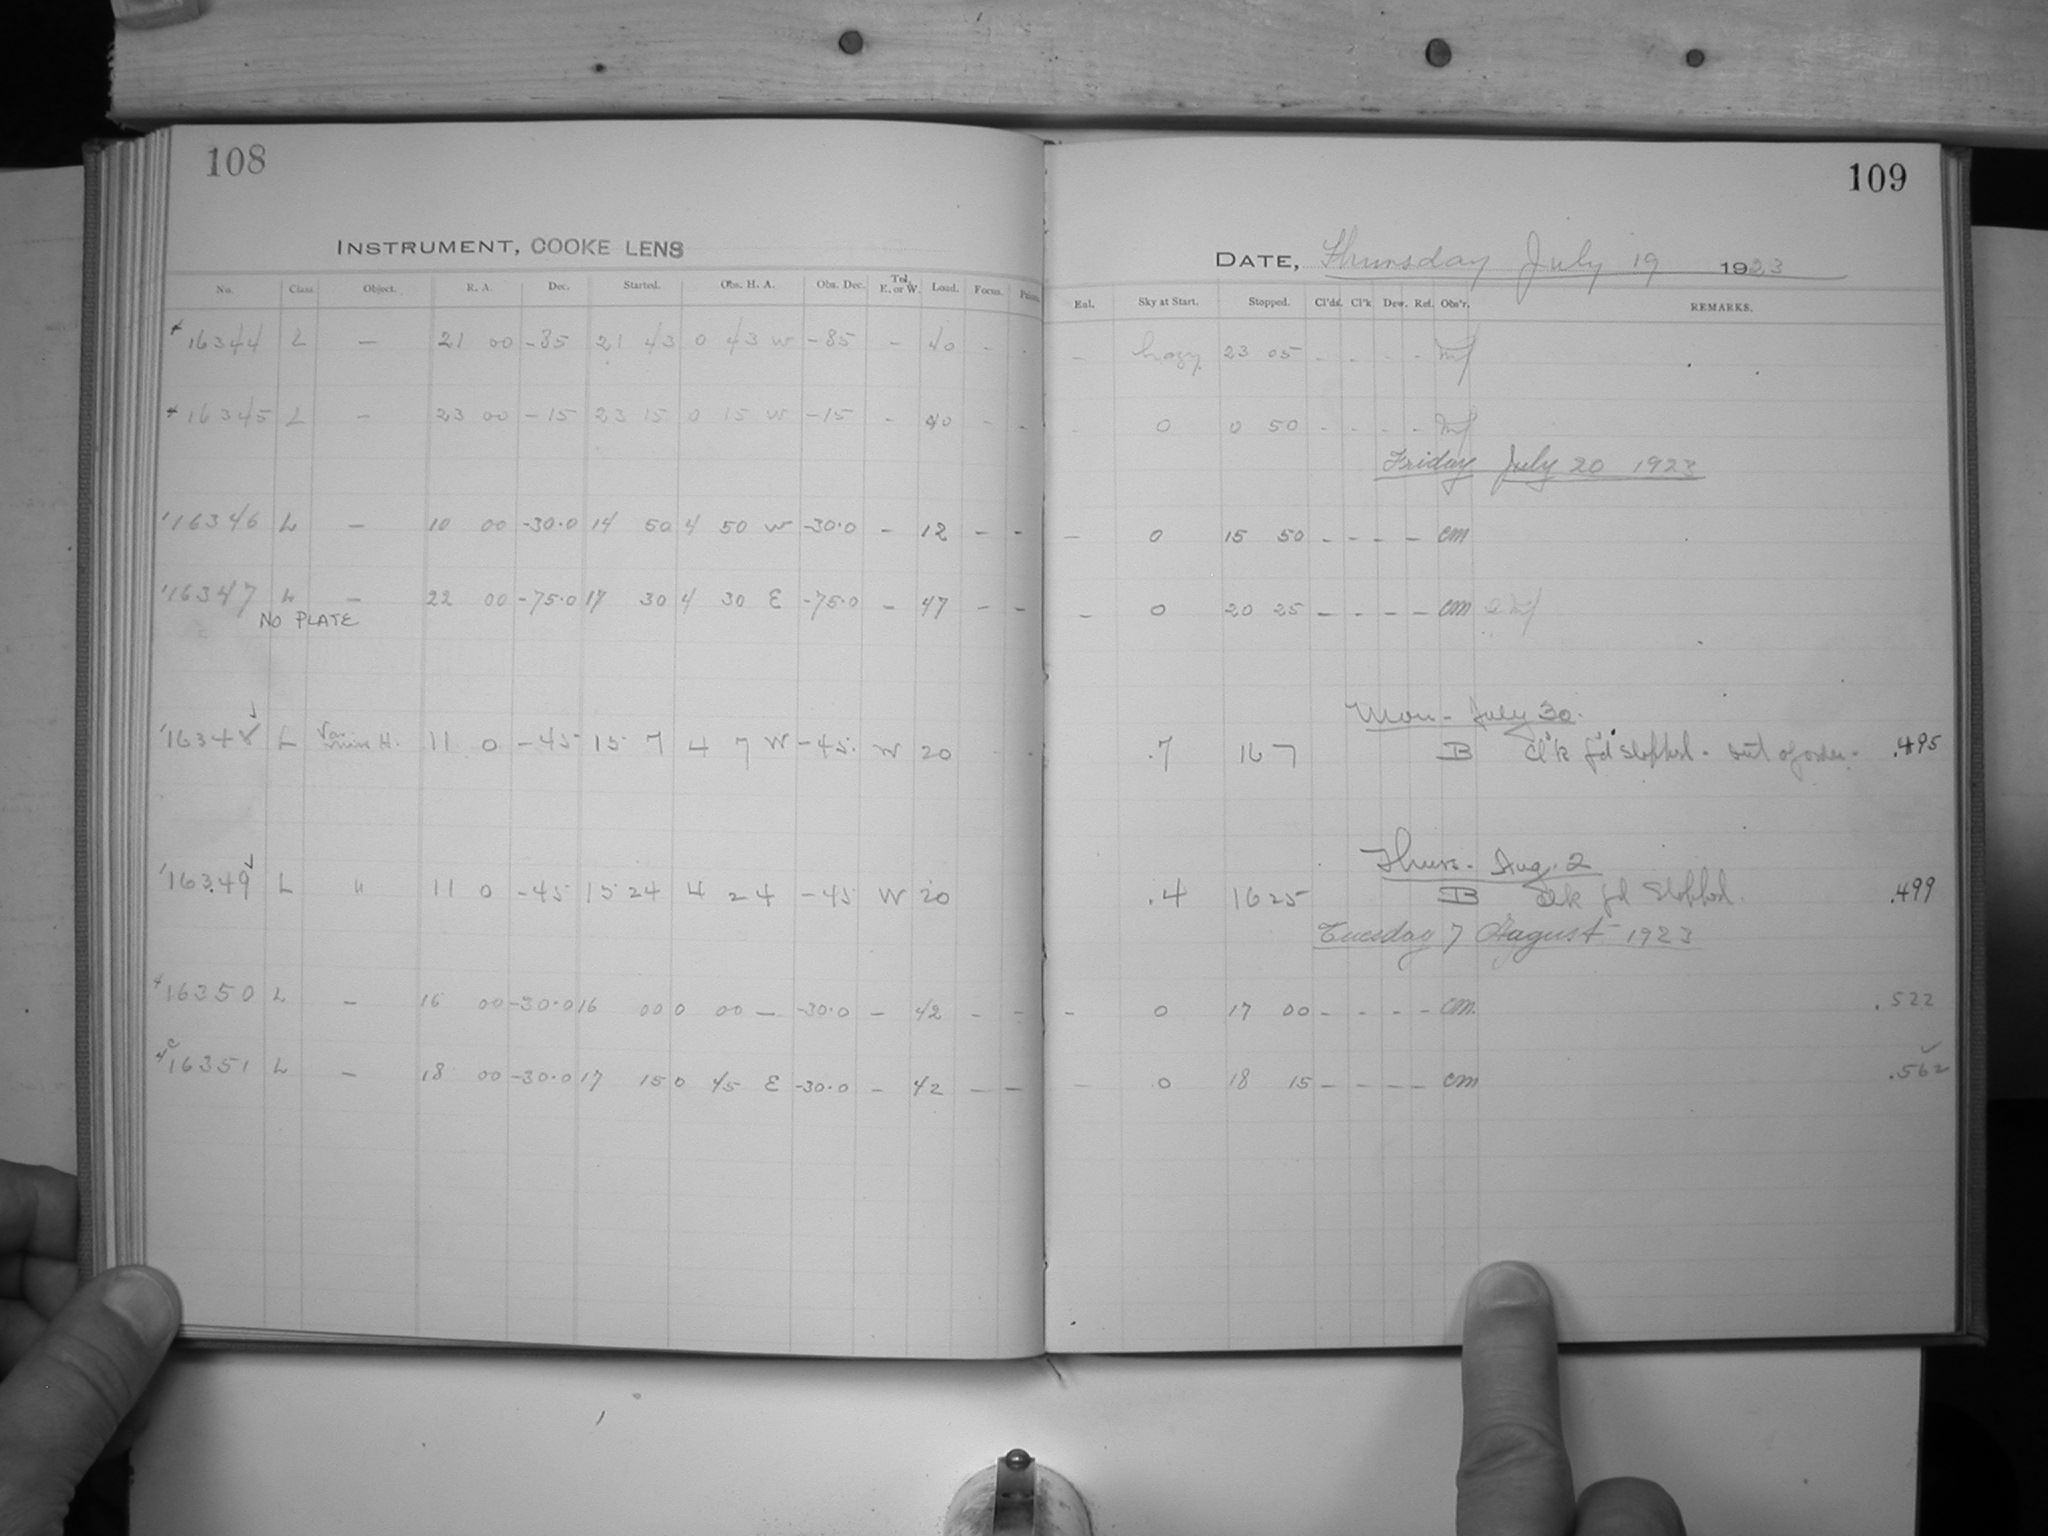 108
INSTRUMENT, COOKE LENS
No. Class. Object. R. A. Dec. Started. Obs. H. A. Obs. Dec. Tel. E. or W. Load. Focus.
16344 L — 21 00 -85 21 43 0 43 W -85 - 40 - -
16345 L — 23 00 -15 23 15 0 15 W -15 - 40 - -
16346 L — 10 00 -30.0 14 50 4 50 W -30.0 - 12 - -
16347 L — 22 00 -75.0 17 30 4 30 E -75.0 - 47 - -
NO PLATE
16348 L H. 11 0 -45 15 7 4 7 W -45 W 20
16349 L " 11 0 -45 15 24 4 24 -45 W 20
16350 L — 16 00 -30.0 16 00 0 00 — -30.0 - 42 - -
16351 L — 18 00 -30.0 17 15 0 45 E -30.0 - 42 - -
109
DATE, Thursday July 19 1923
Eal. Sky at Start. Stopped. Cl'ds. Cl'k Dew. Ref. Obs'r. REMARKS.
- hazy 23 05 - - - -
- 0 0 50 - - - -
Friday July 20 1923
- 0 15 50 - - - - cm
- 0 20 25 - - - - cm
Mon - July 30.
.7 16 7 B Cl'k f'd stopped - out of order - .495
Thurs - Aug. 2
.4 16 25 B Clk fd stopped. .499
Tuesday 7 August 1923
- 0 17 00 - - - - cm. .522
- 0 18 15 - - - - cm .562